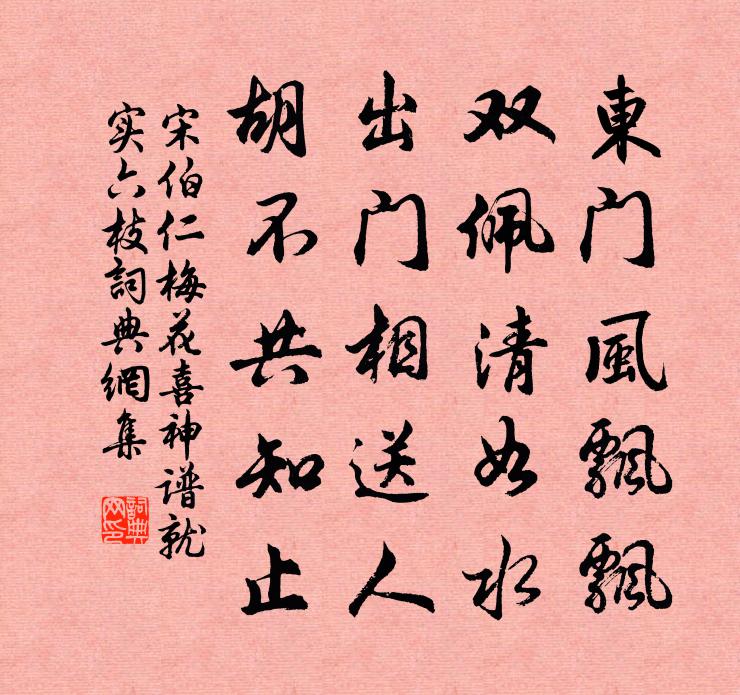 東门風飄飄
双佩清如水
出门相送人
胡不共知止
宋伯仁梅花喜神谱就
实六枝詞典網集
詞典
网印